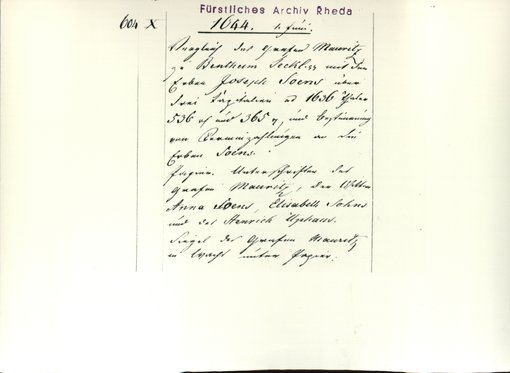 Fürstliches Archiv Rheda
604 X 1644. 1. Juni.
Vergleich des Grafen Mauritz
zu Bentheim Tecklbg mit den
Erben Joseph Soens über
drei Capitalien ad 1636 Thaler
536 und 365 und Bestimmung
von Terminzahlungen an die
Erben Soens.
Papier. Unterschriften des
Grafen Mauritz, der Wittwe
Anna Soens, Elisabeth Sohns
und des Henrich
Siegel des Grafen Mauritz
in Wachs unter Papier.